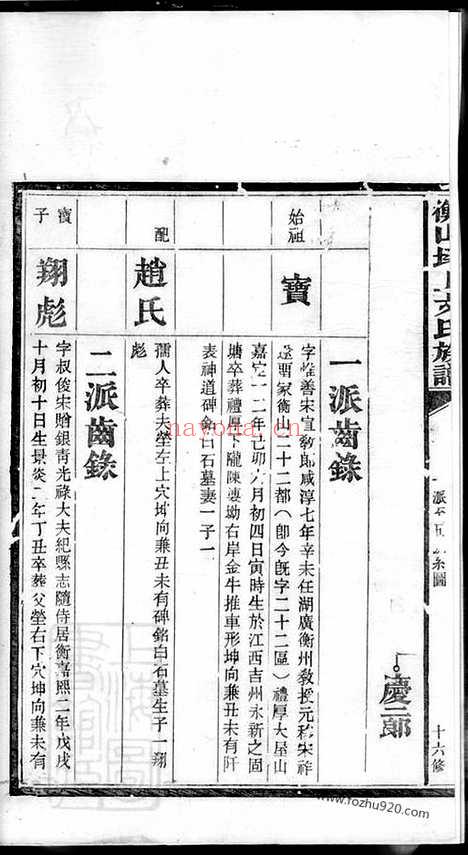 慶二郎
一派齒錄
始祖
寶
字惟善宋宣敎郎咸淳七年辛未任湖廣衡州敎授元移宋祚
遂卽家衡山二十二都（卽今旣字二十二區）禮厚大屋山
嘉定一二年己卯六月初四日寅時生於江西吉州永新之固
塘卒葬禮厚下隴陳裏坳右岸金牛推車形坤向兼丑未有阡
表神道碑銘白石墓妻一子一
配
趙氏
孺人卒葬夫塋左上穴坤向兼丑未有碑銘白石墓生子一翔
彪
二派齒錄
寶子
翔彪
字叔俊宋贈銀靑光祿大夫紀縣志隨侍居衡嘉熙二年戊戌
十月初十日生景炎二年丁丑卒葬父塋右下穴坤向兼未有
氏族譜
派
系圖
十六修
nayona.cn
www.fozhu920.com